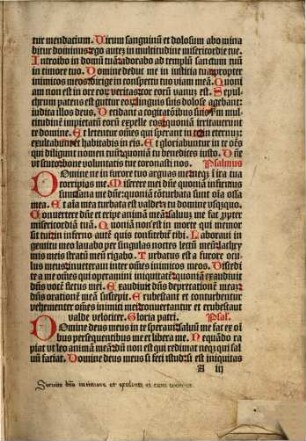 tur mendacium. Virum sanguinū et dolosum abomina
bitur dominus: ego autez in multitudine misericordie tue.
Introibo in domū tuā: adorabo ad templū sanctum tuū
in timore tuo. Domine deduc me in iusticia tua: propter
inimicos meos dirige in conspectu tuo viam meaʒ. Quoni
am non est in ore eoʒ veritas: cor eorū vanuʒ est. Sepul
chrum patens est guttur eoʒ: linguis suis dolose agebant:
iudica illos deus. Decidant a cogitatōibus suis: scdm mul
titudinē impietatū eorū expelle eos: quoniā irritauerunt
te domine. Et letentur oēs qui sperant in te: in eternuʒ
exultabunt et habitabis in eis. Et gloriabuntur in te oēs
qui diligunt nomen tuū: quoniā tu benedices iusto. Dñe
vt scuto bone voluntatis tue coronasti nos. Psalmus
Domine ne in furore tuo arguas me: neqʒ i ira tua
corripias me. Miserere mei dñe quoniā infirmus
sum: sana me dñe: quoniā cōturbata sunt oīa ossa
mea. Et aīa mea turbata est valde: sʒ tu domine vsqʒquo.
Conuertere dñe et eripe animā meā: saluū me fac ꝓpter
misericordiā tuā. Quoniā non est in morte qui memor
sit tui: in inferno autē quis confitebit tibi. Laboraui in
gemitu meo lauabo per singulas noctes lectū meū: lachry
mis meis stratū meū rigabo. Turbatus est a furore ocu
lus meus: inueteraui inter oēs inimicos meos. Discedi
te a me oēs qui operamini iniquitatē: quoniā exaudiuit
dñs vocē fletus mei. Exaudiuit dñs deprecationē meā:
dñs orationē meā suscepit. Erubescant et conturbentur
vehementer oēs inimici mei: conuertantur et erubescant
valde velociter. Gloria patri. Psal.
Domine deus meus in te speraui: saluū me fac ex oī
bus persequentibus me et libera me. Nequādo ra
piat vt leo animā meā: dū non est qui redimat neqʒ qui sal
uū faciat. Domine deus meus si feci istud: si est iniquitas
A iij